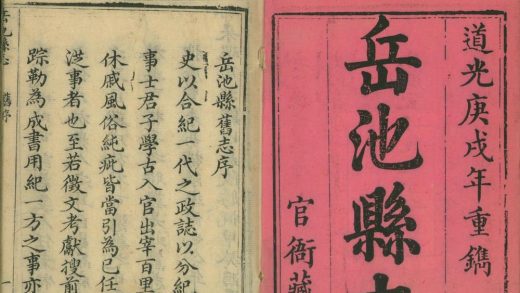 道光庚戌年重鐫
岳池縣
官衙藏
岳池縣舊志序
史以合紀一代之政誌以分紀
事士君子學古入官出宰百里
休戚風俗純疵皆當引為已任
涖事者也至若徵文考獻搜前
踪勒為成書用紀一方之事亦
舊序